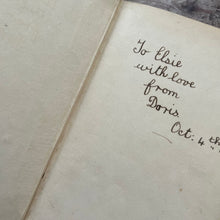 To Elsie
with love
from
Doris
Oct. 4th